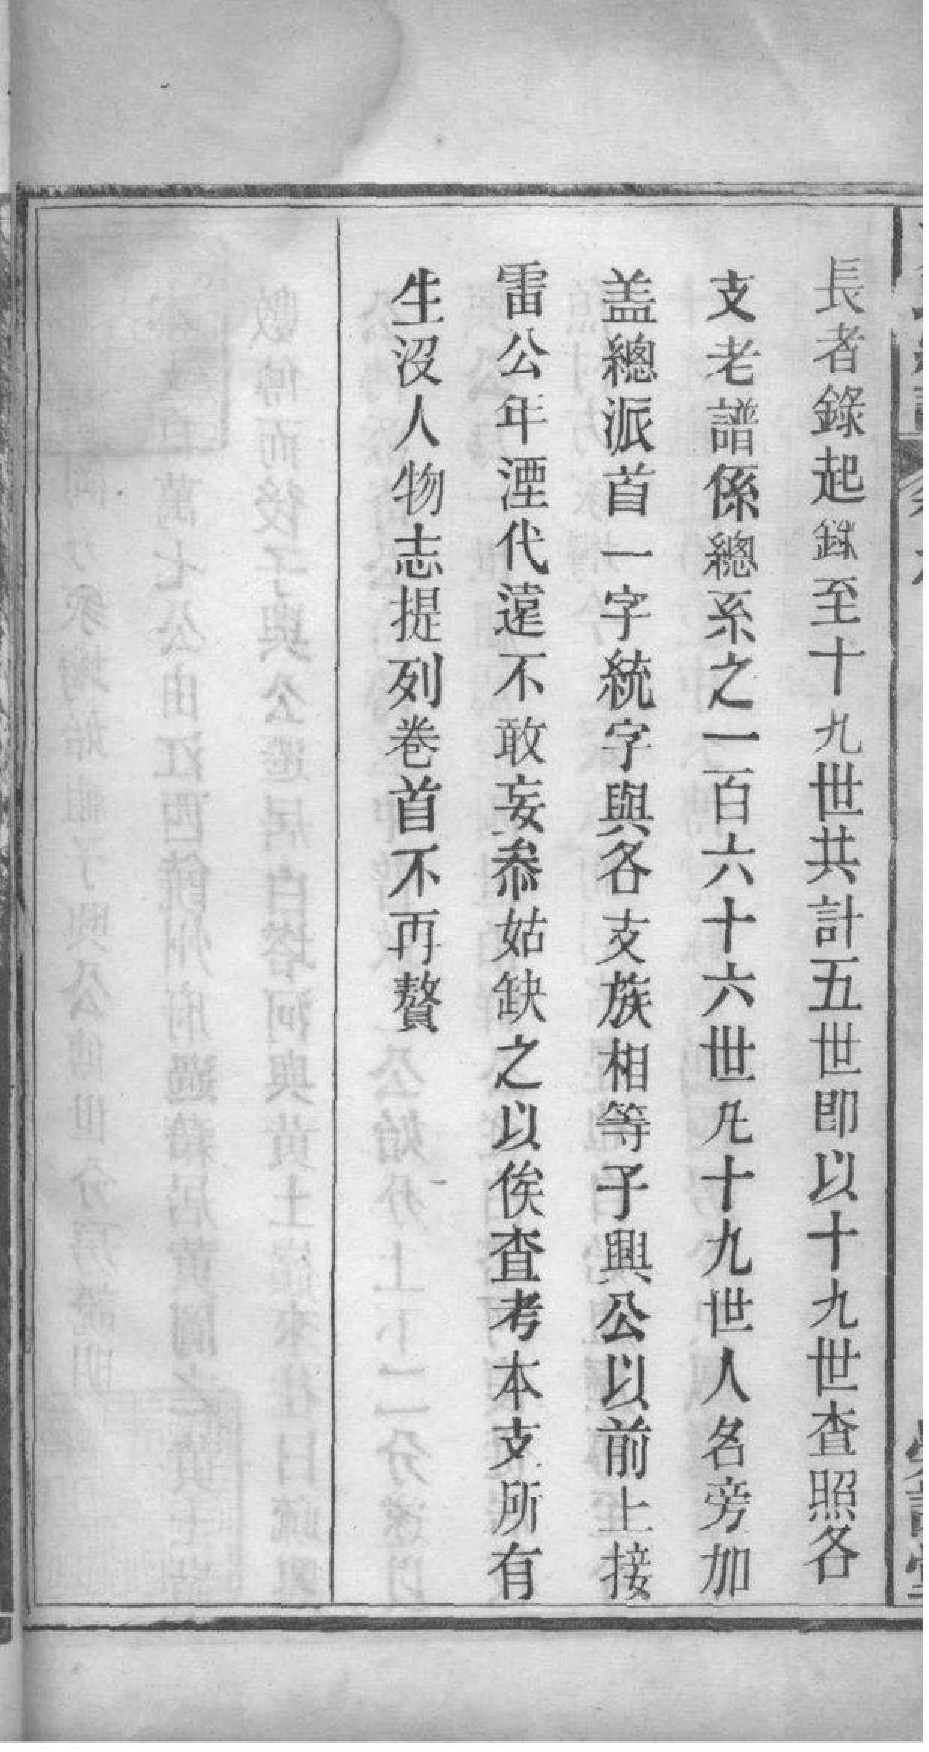 長者錄起錄至十九世共計五世即以十九世查照各
支老譜係總系之一百六十六世凡十九世人名旁加
盖總派首一字統字與各支族相等子興公以前上接
雷公年湮代遠不敢妄叅姑缺之以俟查考本支所有
生没人物志提列卷首不再贅